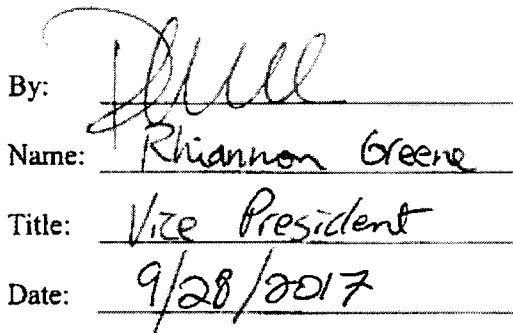 By:
Name: Rhiannon Greene
Title: Vice President
Date: 9/28/2017